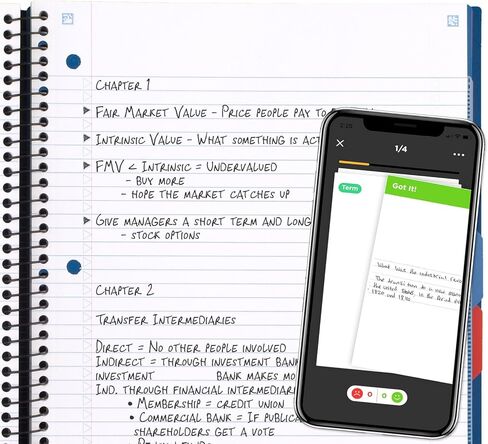 CHAPTER 1
FAIR MARKET VALUE - PRICE PEOPLE PAY TO
INTRINSIC VALUE - WHAT SOMETHING IS
FMV < INTRINSIC = UNDERVALUED
- BUY MORE
- HOPE THE MARKET CATCHES UP
GIVE MANAGERS A SHORT TERM AND
- STOCK OPTIONS
CHAPTER 2
TRANSFER INTERMEDIARIES
DIRECT = NO OTHER PEOPLE INVOLVED
INDIRECT = THROUGH INVESTMENT BANK
INVESTMENT BANK MAKES
IND. THROUGH FINANCIAL
• MEMBERSHIP = CREDIT UNION
• COMMERCIAL BANK = IF
SHAREHOLDERS GET A VOTE
2:25
1/4
Term
Got It!
What was the industrial
The transition to a new
the United States, in the
1820 and 1840.
0 0